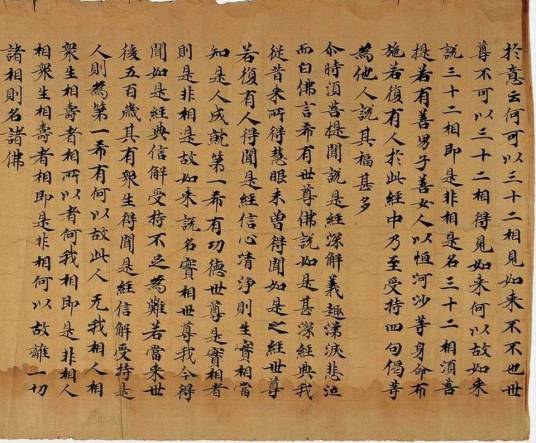 於意云何可以三十二相見如来不不也世
尊不可以三十二相得見如来何以故如来
說三十二相即是非相是名三十二相湏菩
提若有善男子善女人以恒河沙等身命布
施若復有人於此經中乃至受持四句偈等
為他人說其福甚多
尒時湏菩提聞說是經深解義趣涕淚悲泣
而白佛言希有世尊佛說如是甚深經典我
從昔来所得慧眼未曾得聞如是之經世尊
若復有人得聞是經信心清淨則生實相當
知是人成就第一希有功德世尊是實相者
則是非相是故如来說名實相世尊我今得
聞如是經典信解受持不足為難若當来世
後五百歲其有衆生得聞是經信解受持是
人則為第一希有何以故此人无我相人相
衆生相壽者相所以者何我相即是非相人
相衆生相壽者相即是非相何以故離一切
諸相則名諸佛